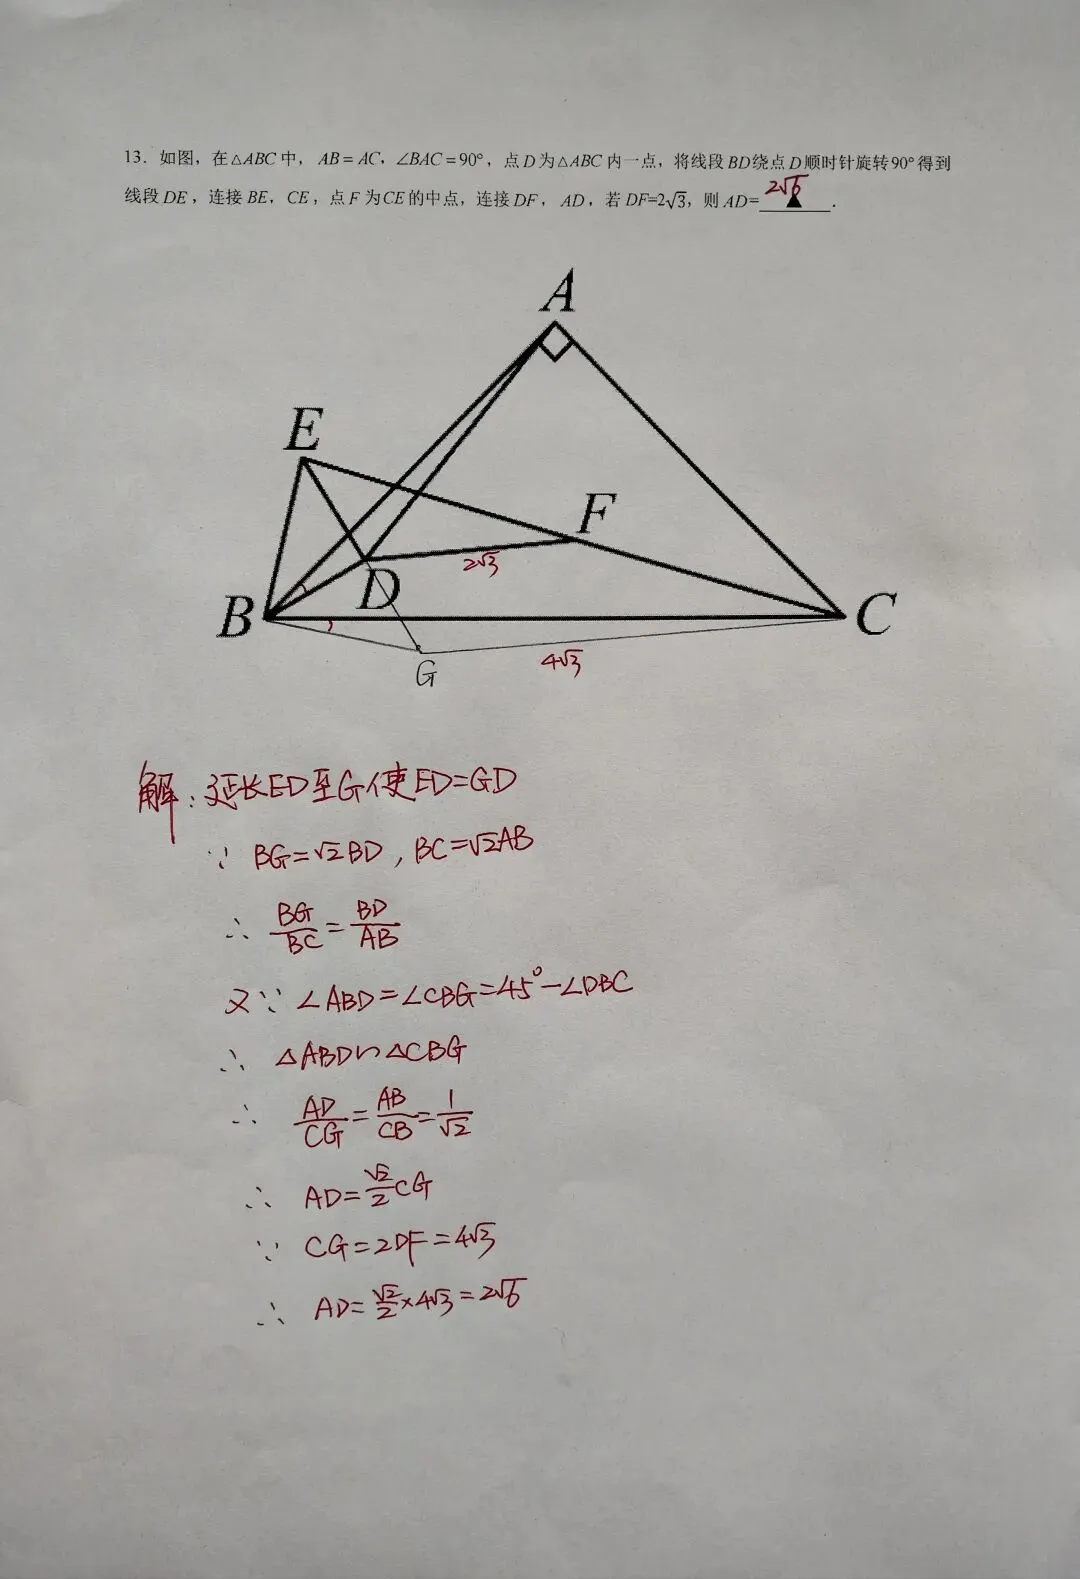 13. 如图，在△ABC中，AB=AC，∠BAC=90°，点D为△ABC内一点，将线段BD绕点D顺时针旋转90°得到
线段DE，连接BE，CE，点F为CE的中点，连接DF，AD，若DF=2√3，则AD=2√6▲.
A
E
F
2√3
D
B
C
4√3
G
解：延长ED至G使ED=GD
∵ BG=√2BD，BC=√2AB
∴ BG/BC=BD/AB
又∵ ∠ABD=∠CBG=45°-∠DBC
∴ △ABD∽△CBG
∴ AD/CG=AB/CB=1/√2
∴ AD=√2/2CG
∵ CG=2DF=4√3
∴ AD=√2/2×4√3=2√6